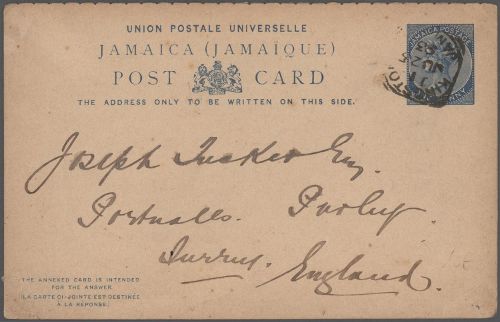 UNION POSTALE UNIVERSELLE
JAMAICA (JAMAÏQUE)
POST CARD
THE ADDRESS ONLY TO BE WRITTEN ON THIS SIDE.
JAMAICA POSTAGE
KINGSTON
JU 25
Joseph Tucker Esq.
Portnalls. Purley.
Surrey.
England.
THE ANNEXED CARD IS INTENDED
FOR THE ANSWER.
(LA CARTE CI-JOINTE EST DESTINÉE
À LA RÉPONSE.)